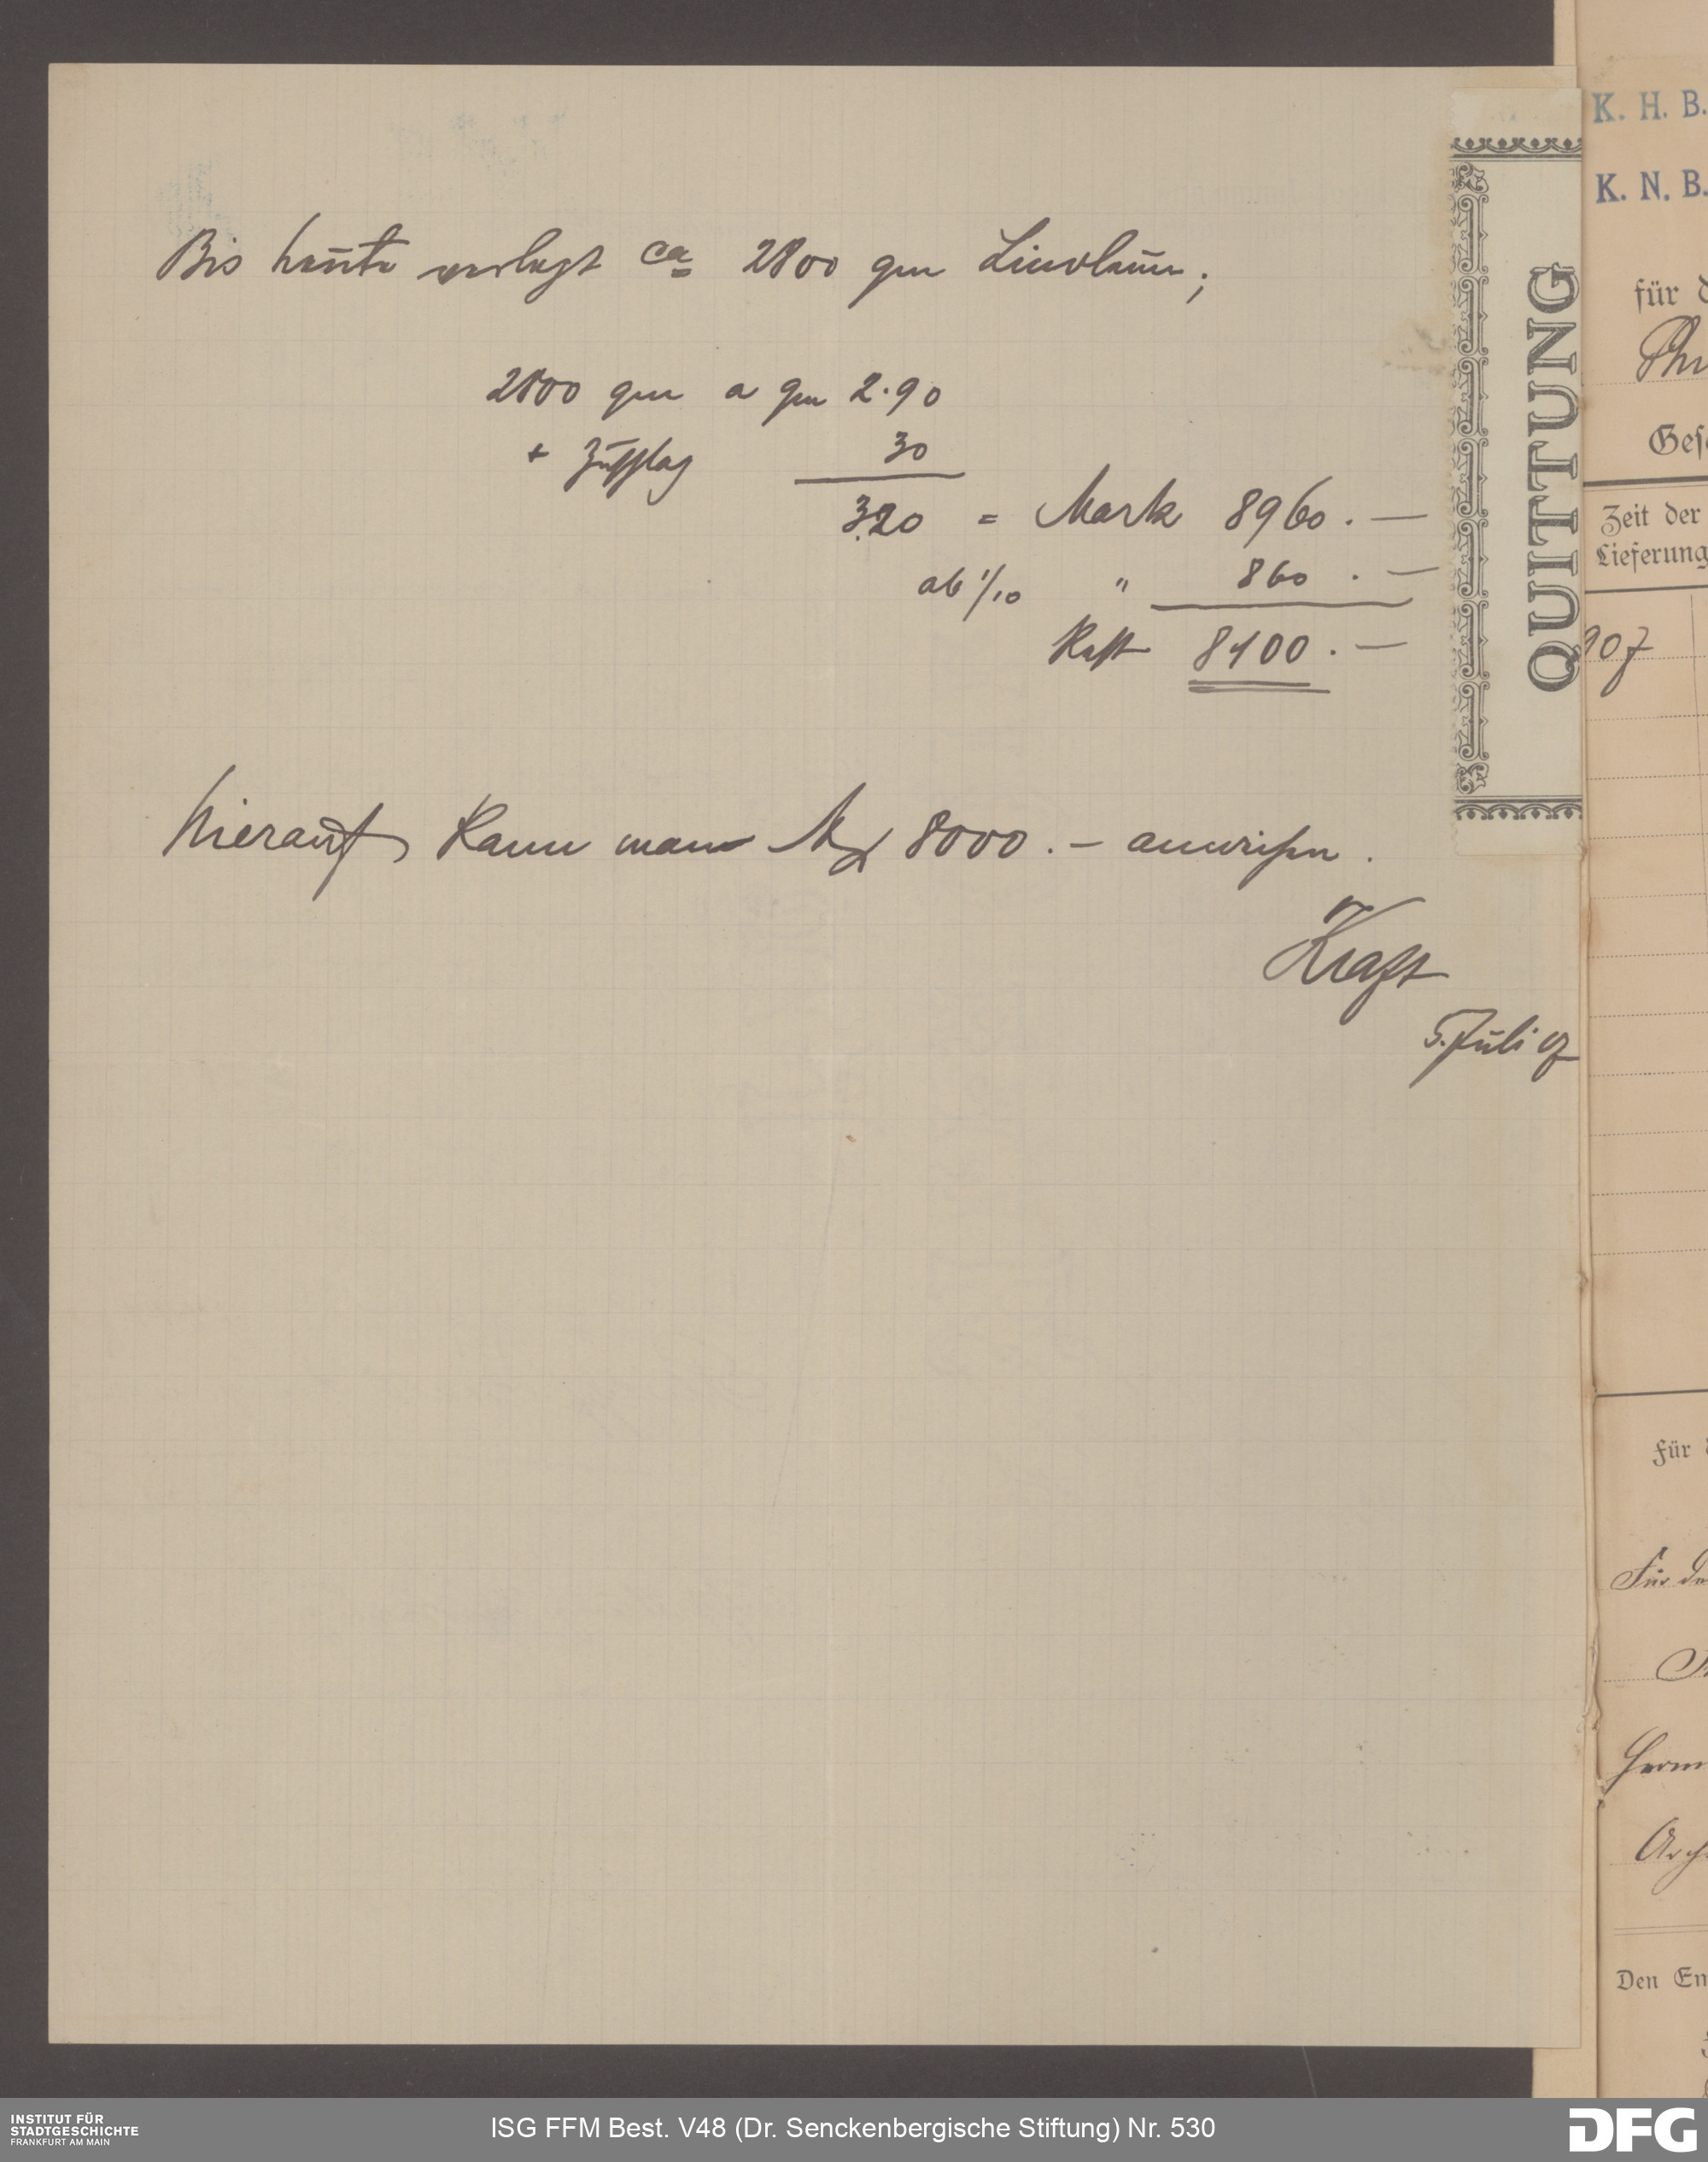 Bis heute verlegt ca 2800 qm Linoleum;
2800 qm a qm 2.90
+ Zuschlag 30
3.20 = Mark 8960.—
ab 1/10 " 860.—
Rest 8100.—
Hierauf kann man M 8000.— anweisen.
Kraft
5. Juli 07
QUITTUNG
K. H. B.
K. N. B.
für d
Ges
Zeit der
Lieferung
907
Für d
Den Em
INSTITUT FÜR
STADTGESCHICHTE
FRANKFURT AM MAIN
ISG FFM Best. V48 (Dr. Senckenbergische Stiftung) Nr. 530
DFG